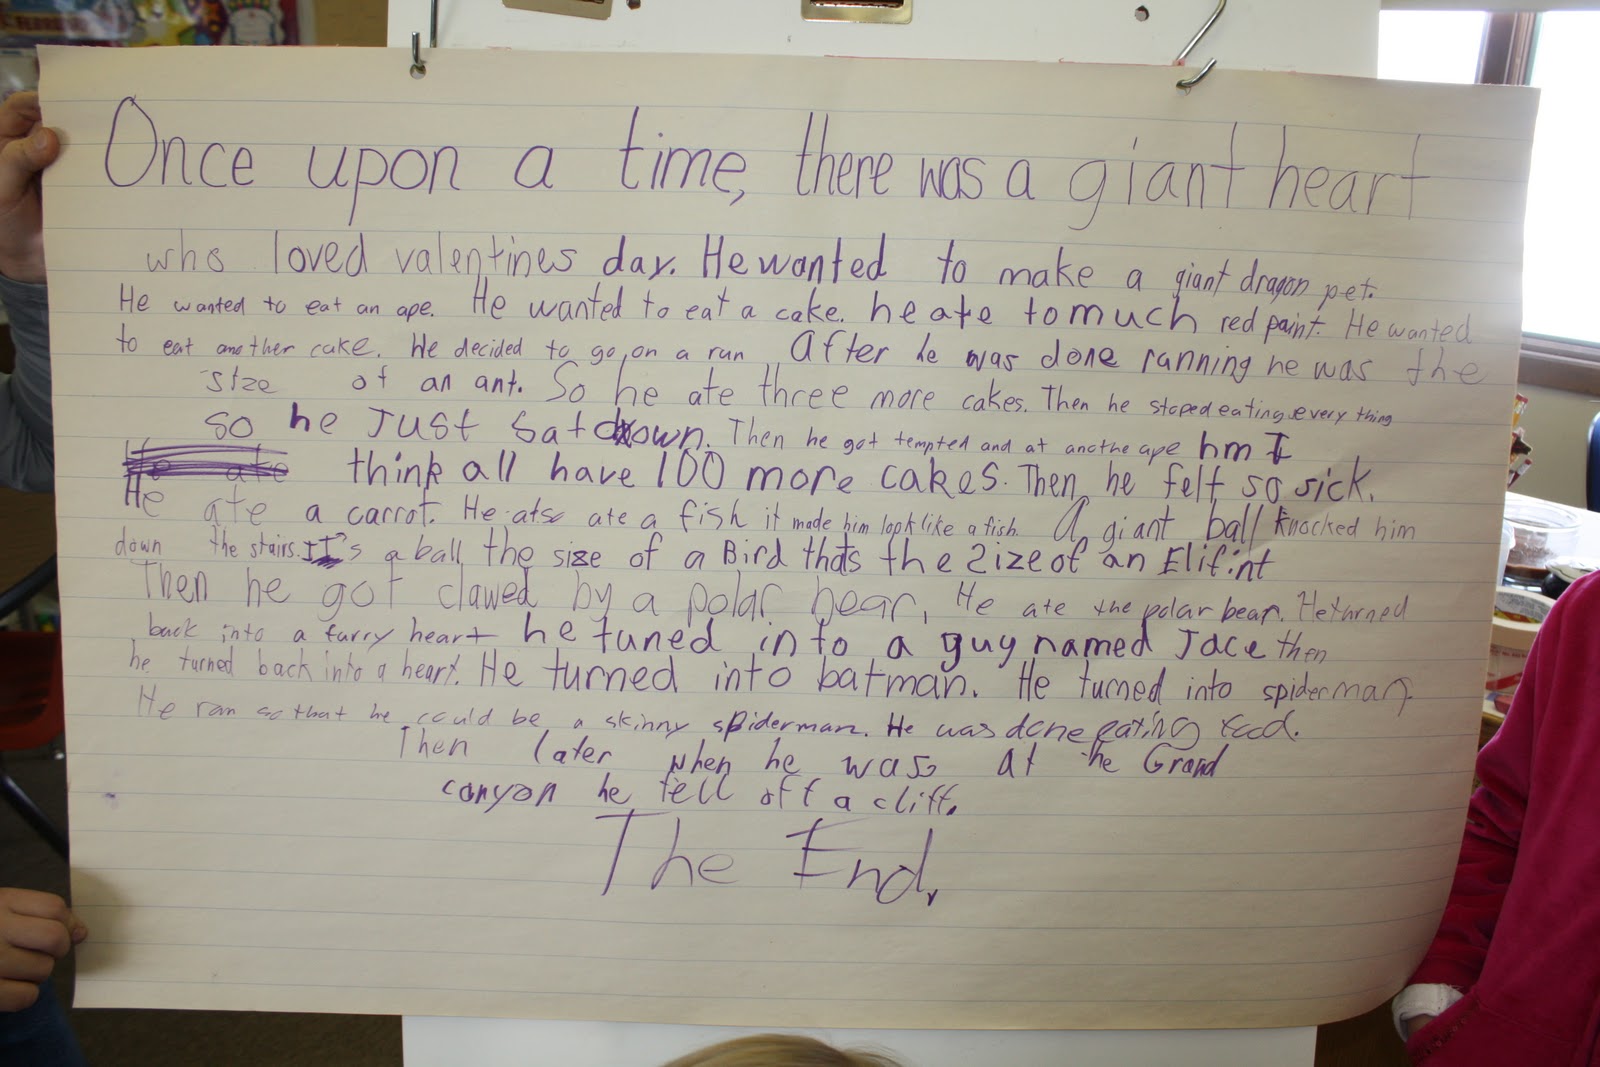 Once upon a time, there was a giant heart
who loved valentines day. He wanted to make a giant dragon pet.
He wanted to eat an ape. He wanted to eat a cake. he ate to much red paint. He wanted
to eat another cake. He decided to go on a run After he was done running he was the
size of an ant. So he ate three more cakes. Then he stoped eating every thing
so he Just Sat down. Then he got tempted and at anothe ape hm I
think all have 100 more cakes. Then he felt so sick.
He ate a carrot. He also ate a fish it made him look like a fish. A giant ball knocked him
down the stairs. It's a ball the size of a Bird thats the 2ize of an Elifint
Then he got clawed by a polar bear. He ate the polar bear. He turned
back into a furry heart he tuned into a guy named Jace then
he turned back into a heart. He turned into batman. He turned into spiderman.
He ran so that he could be a skinny spiderman. He was done eating food.
Then later when he was at the Grand
canyon he fell off a cliff.
The End.